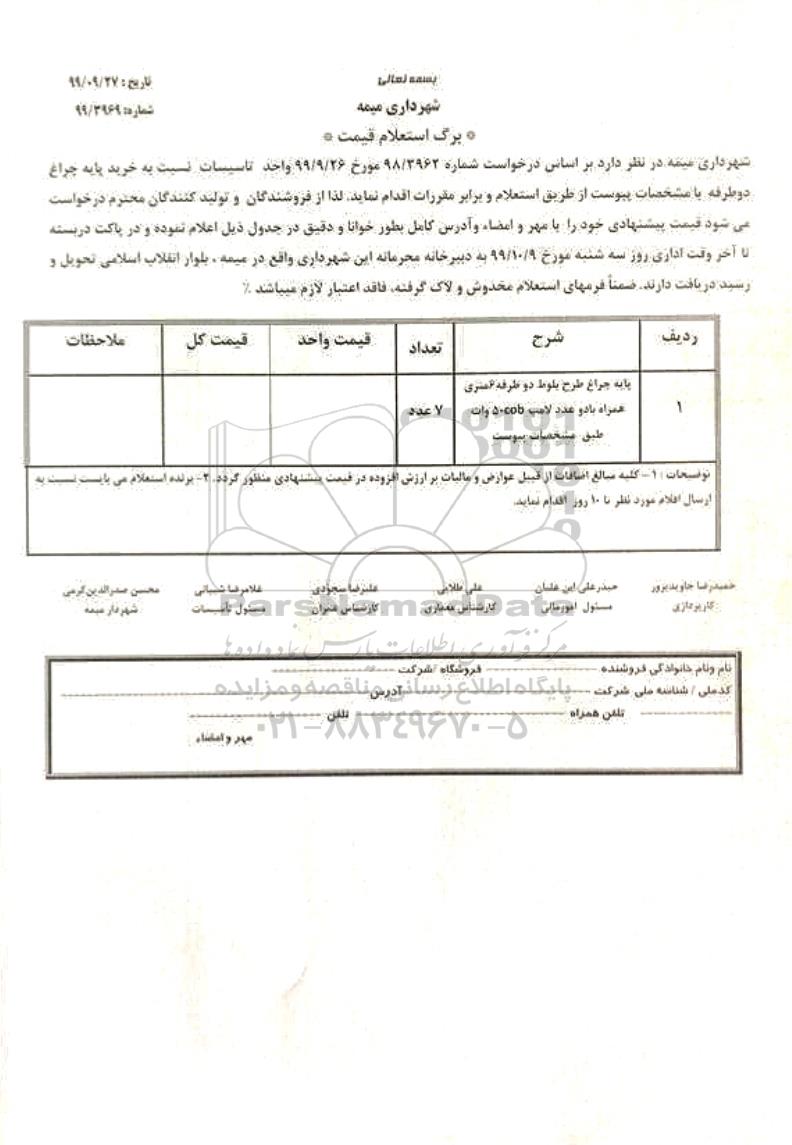 بسمه تعالی
تاریخ: ۹۹/۰۹/۲۷
شهرداری میمه
شماره: ۹۹/۳۹۶۹
* برگ استعلام قیمت *
شهرداری میمه در نظر دارد بر اساس درخواست شماره ۹۸/۳۹۶۲ مورخ ۹۹/۹/۲۶ واحد تاسیسات نسبت به خرید پایه چراغ
دوطرفه با مشخصات پیوست از طریق استعلام و برابر مقررات اقدام نماید، لذا از فروشندگان و تولید کنندگان محترم درخواست
می شود قیمت پیشنهادی خود را با مهر و امضاء وآدرس کامل بطور خوانا و دقیق در جدول ذیل اعلام نموده و در پاکت دربسته
تا آخر وقت اداری روز سه شنبه مورخ ۹۹/۱۰/۹ به دبیرخانه محرمانه این شهرداری واقع در میمه ، بلوار انقلاب اسلامی تحویل و
رسید دریافت دارند. ضمناً فرمهای استعلام مخدوش و لاک گرفته، فاقد اعتبار لازم میباشد ٪
ردیف شرح تعداد قیمت واحد قیمت کل ملاحظات
پایه چراغ طرح بلوط دو طرفه ۶متری
۱ همراه بادو عدد لامپ ۵۰cob وات ۷ عدد
طبق مشخصات پیوست
توضیحات : ۱- کلیه مبالغ اضافات از قبیل عوارض و مالیات بر ارزش افزوده در قیمت پیشنهادی منظور گردد. ۲- برنده استعلام می بایست نسبت به
ارسال اقلام مورد نظر تا ۱۰ روز اقدام نماید.
حمیدرضا جاویدپرور حیدرعلی ابن علیان علی طلایی علیرضا سجودی غلامرضا شیبانی محسن صدرالدین کرمی
کارپردازی مسئول امورمالی کارشناس معماری کارشناس عمران مسئول تاسیسات شهردار میمه
ParsNamadData
مرکز فرآوری اطلاعات پارس نماد داده ها
نام ونام خانوادگی فروشنده فروشگاه /شرکت
پایگاه اطلاع رسانی مناقصه و مزایده
کدملی / شناسه ملی شرکت آدرس
تلفن همراه تلفن
۰۲۱-۸۸۳۴۹۶۷۰-۵
مهر و امضاء